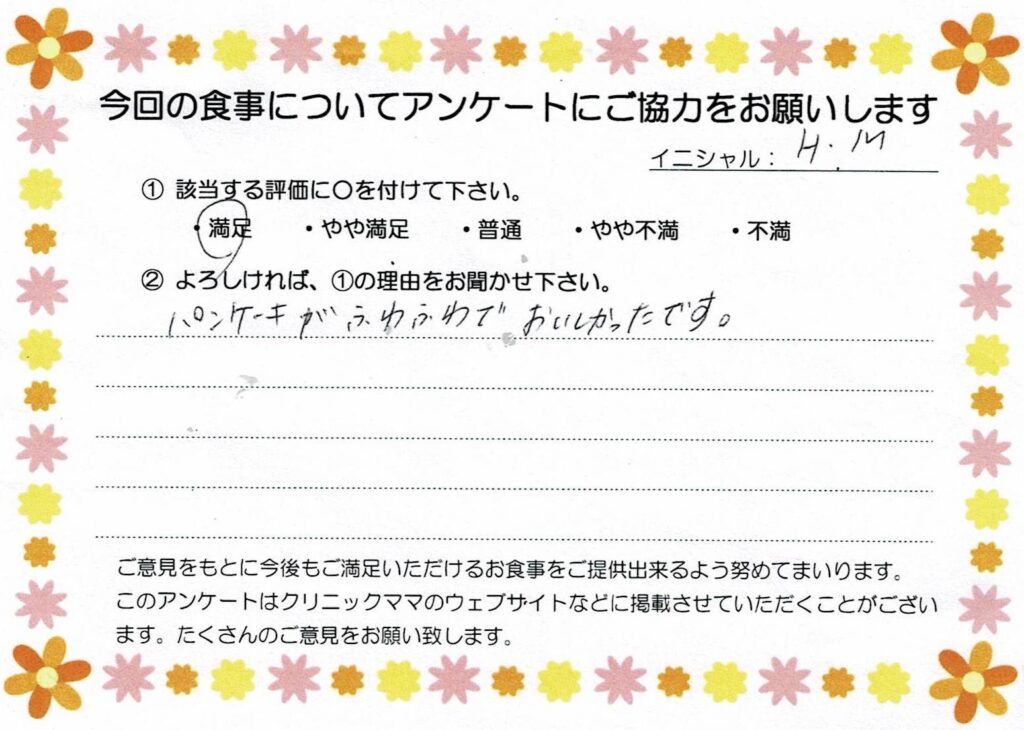 今回の食事についてアンケートにご協力をお願いします
イニシャル： H.M
① 該当する評価に〇を付けて下さい。
・満足 ・やや満足 ・普通 ・やや不満 ・不満
② よろしければ、①の理由をお聞かせ下さい。
パンケーキがふわふわでおいしかったです。
ご意見をもとに今後もご満足いただけるお食事をご提供出来るよう努めてまいります。
このアンケートはクリニックママのウェブサイトなどに掲載させていただくことがござい
ます。たくさんのご意見をお願い致します。